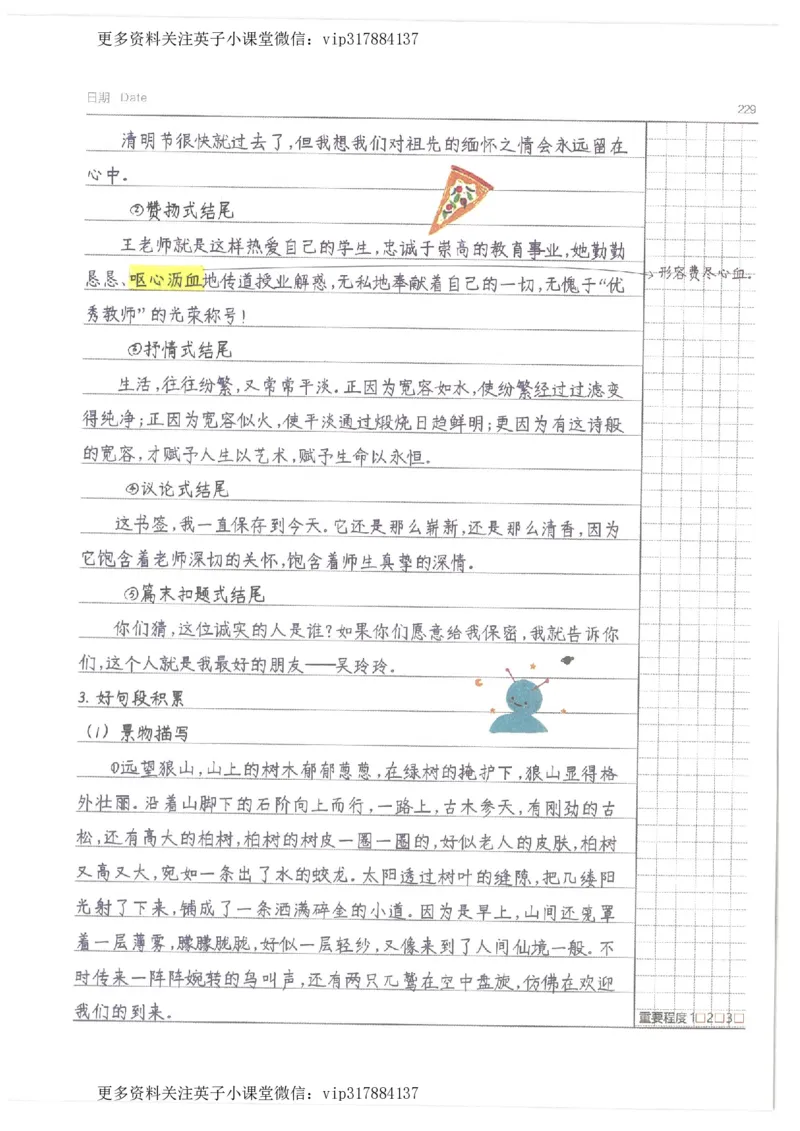 更多资料关注英子小课堂微信：vip317884137
日期 Date
229
清明节很快就过去了,但我想我们对祖先的缅怀之情会永远留在
心中。
②赞扬式结尾
王老师就是这样热爱自己的学生,忠诚于崇高的教育事业,她勤勤
恳恳、呕心沥血地传道授业解惑,无私地奉献着自己的一切,无愧于“优
秀教师”的光荣称号!
→形容费尽心血。
③抒情式结尾
生活,往往纷繁,又常常平淡。正因为宽容如水,使纷繁经过过滤变
得纯净;正因为宽容似火,使平淡通过煅烧日趋鲜明;更因为有这诗般
的宽容,才赋予人生以艺术,赋予生命以永恒。
④议论式结尾
这书签,我一直保存到今天。它还是那么崭新,还是那么清香,因为
它饱含着老师深切的关怀,饱含着师生真挚的深情。
⑤篇末扣题式结尾
你们猜,这位诚实的人是谁?如果你们愿意给我保密,我就告诉你
们,这个人就是我最好的朋友——吴玲玲。
3. 好句段积累
(1) 景物描写
①远望狼山,山上的树木郁郁葱葱,在绿树的掩护下,狼山显得格
外壮丽。沿着山脚下的石阶向上而行,一路上,古木参天,有刚劲的古
松,还有高大的柏树,柏树的树皮一圈一圈的,好似老人的皮肤,柏树
又高又大,宛如一条出了水的蛟龙。太阳透过树叶的缝隙,把几缕阳
光射了下来,铺成了一条洒满碎金的小道。因为是早上,山间还笼罩
着一层薄雾,朦朦胧胧,好似一层轻纱,又像来到了人间仙境一般。不
时传来一阵阵婉转的鸟叫声,还有两只兀鹫在空中盘旋,仿佛在欢迎
我们的到来。
重要程度 1□2□3□
更多资料关注英子小课堂微信：vip317884137